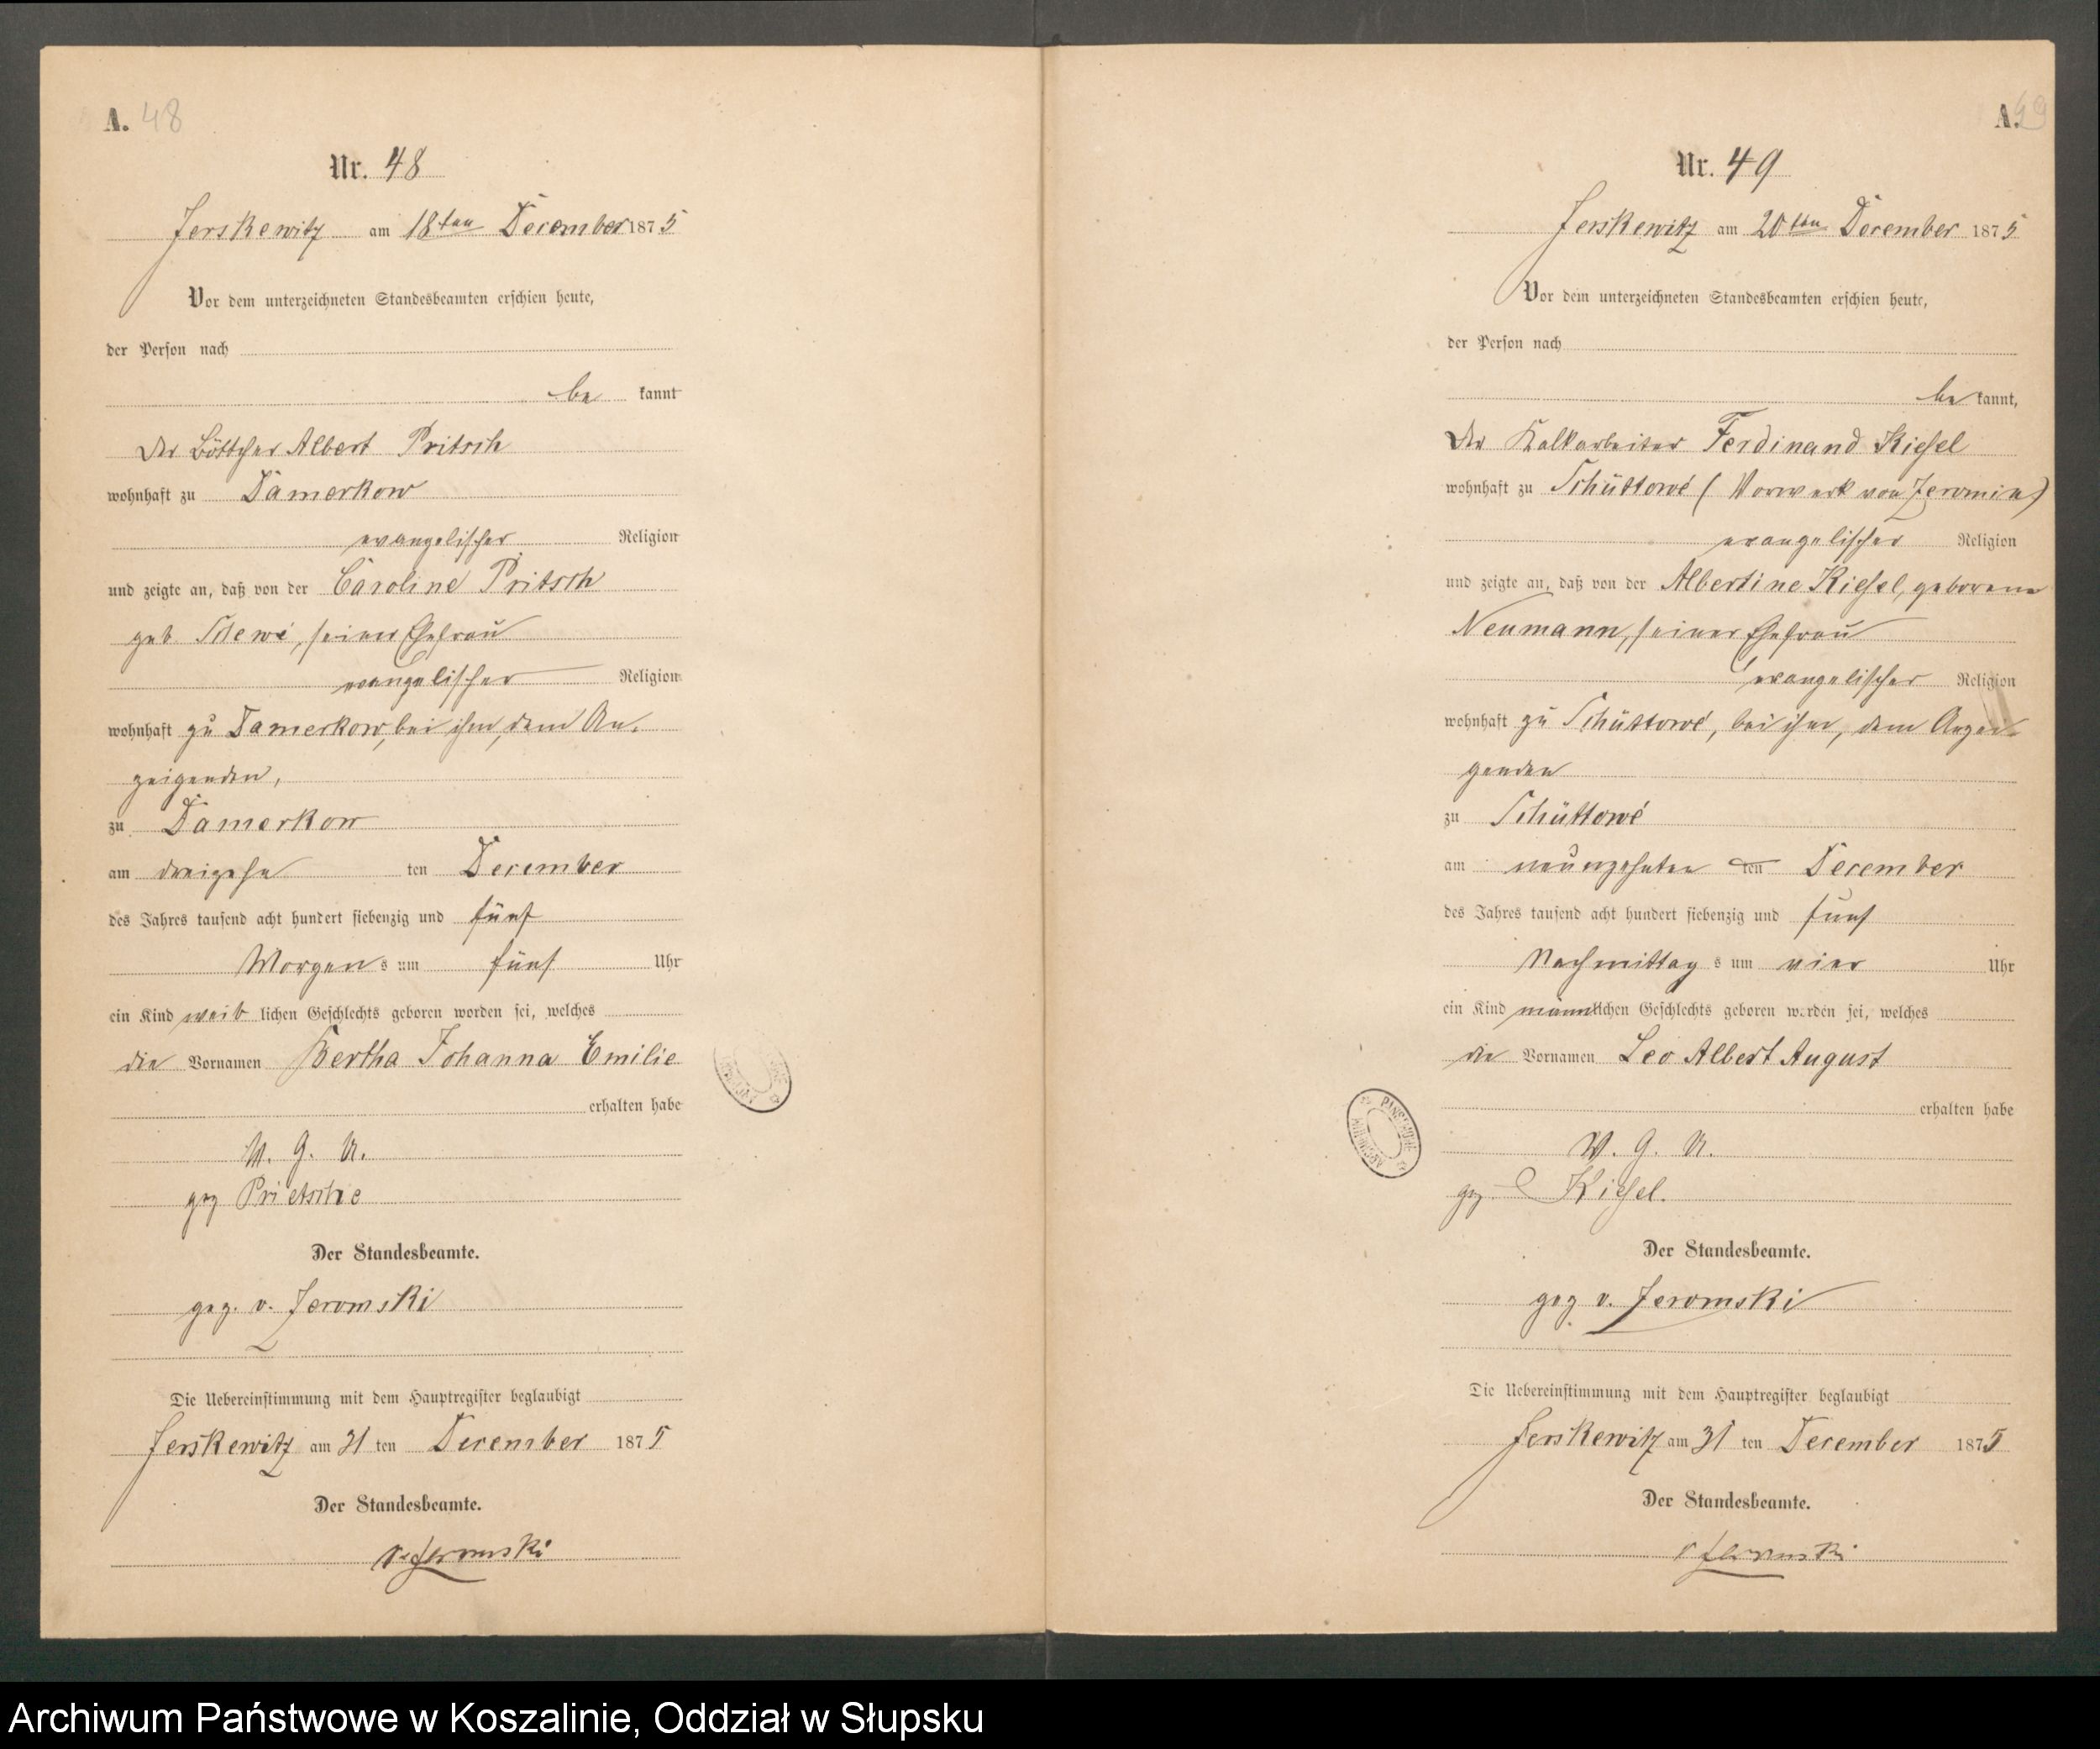 A. 48
Nr. 48
Jerskewitz am 18ten December 1875
Vor dem unterzeichneten Standesbeamten erschien heute,
der Person nach
be kannt
der Böttcher Albert Pritsch
wohnhaft zu Damerkow
evangelischer Religion
und zeigte an, daß von der Caroline Pritsch
geb. seiner Ehefrau
evangelischer Religion
wohnhaft zu Damerkow, bei ihm, dem An-
zeigenden,
zu Damerkow
am dreizehn ten December
des Jahres tausend acht hundert siebenzig und fünf
Morgen s um fünf Uhr
ein Kind weib lichen Geschlechts geboren worden sei, welches
die Vornamen Bertha Johanna Emilie
erhalten habe
V. G. U.
gez Prietsche
Der Standesbeamte.
gez. v. Jeromski
Die Uebereinstimmung mit dem Hauptregister beglaubigt
Jerskewitz am 31 ten December 1875
Der Standesbeamte.
v. Jeromski
A. 49
Nr. 49
Jerskewitz am 20ten December 1875
Vor dem unterzeichneten Standesbeamten erschien heute,
der Person nach
be kannt,
der Kalkarbeiter Ferdinand Kiesel
wohnhaft zu Schüttowé (Vorwerk von Jeromin)
evangelischer Religion
und zeigte an, daß von der Albertine Kiesel, geborene
Neumann, seiner Ehefrau
evangelischer Religion
wohnhaft zu Schüttowé, bei ihm, dem Anzei-
genden
zu Schüttowé
am neunzehnten ten December
des Jahres tausend acht hundert siebenzig und fünf
Nachmittag s um vier Uhr
ein Kind männlichen Geschlechts geboren worden sei, welches
die Vornamen Leo Albert August
erhalten habe
V. G. U.
gez. Kiesel.
Der Standesbeamte.
gez v. Jeromski
Die Uebereinstimmung mit dem Hauptregister beglaubigt
Jerskewitz am 31 ten December 1875
Der Standesbeamte.
v Jeromski
Archiwum Państwowe w Koszalinie, Oddział w Słupsku